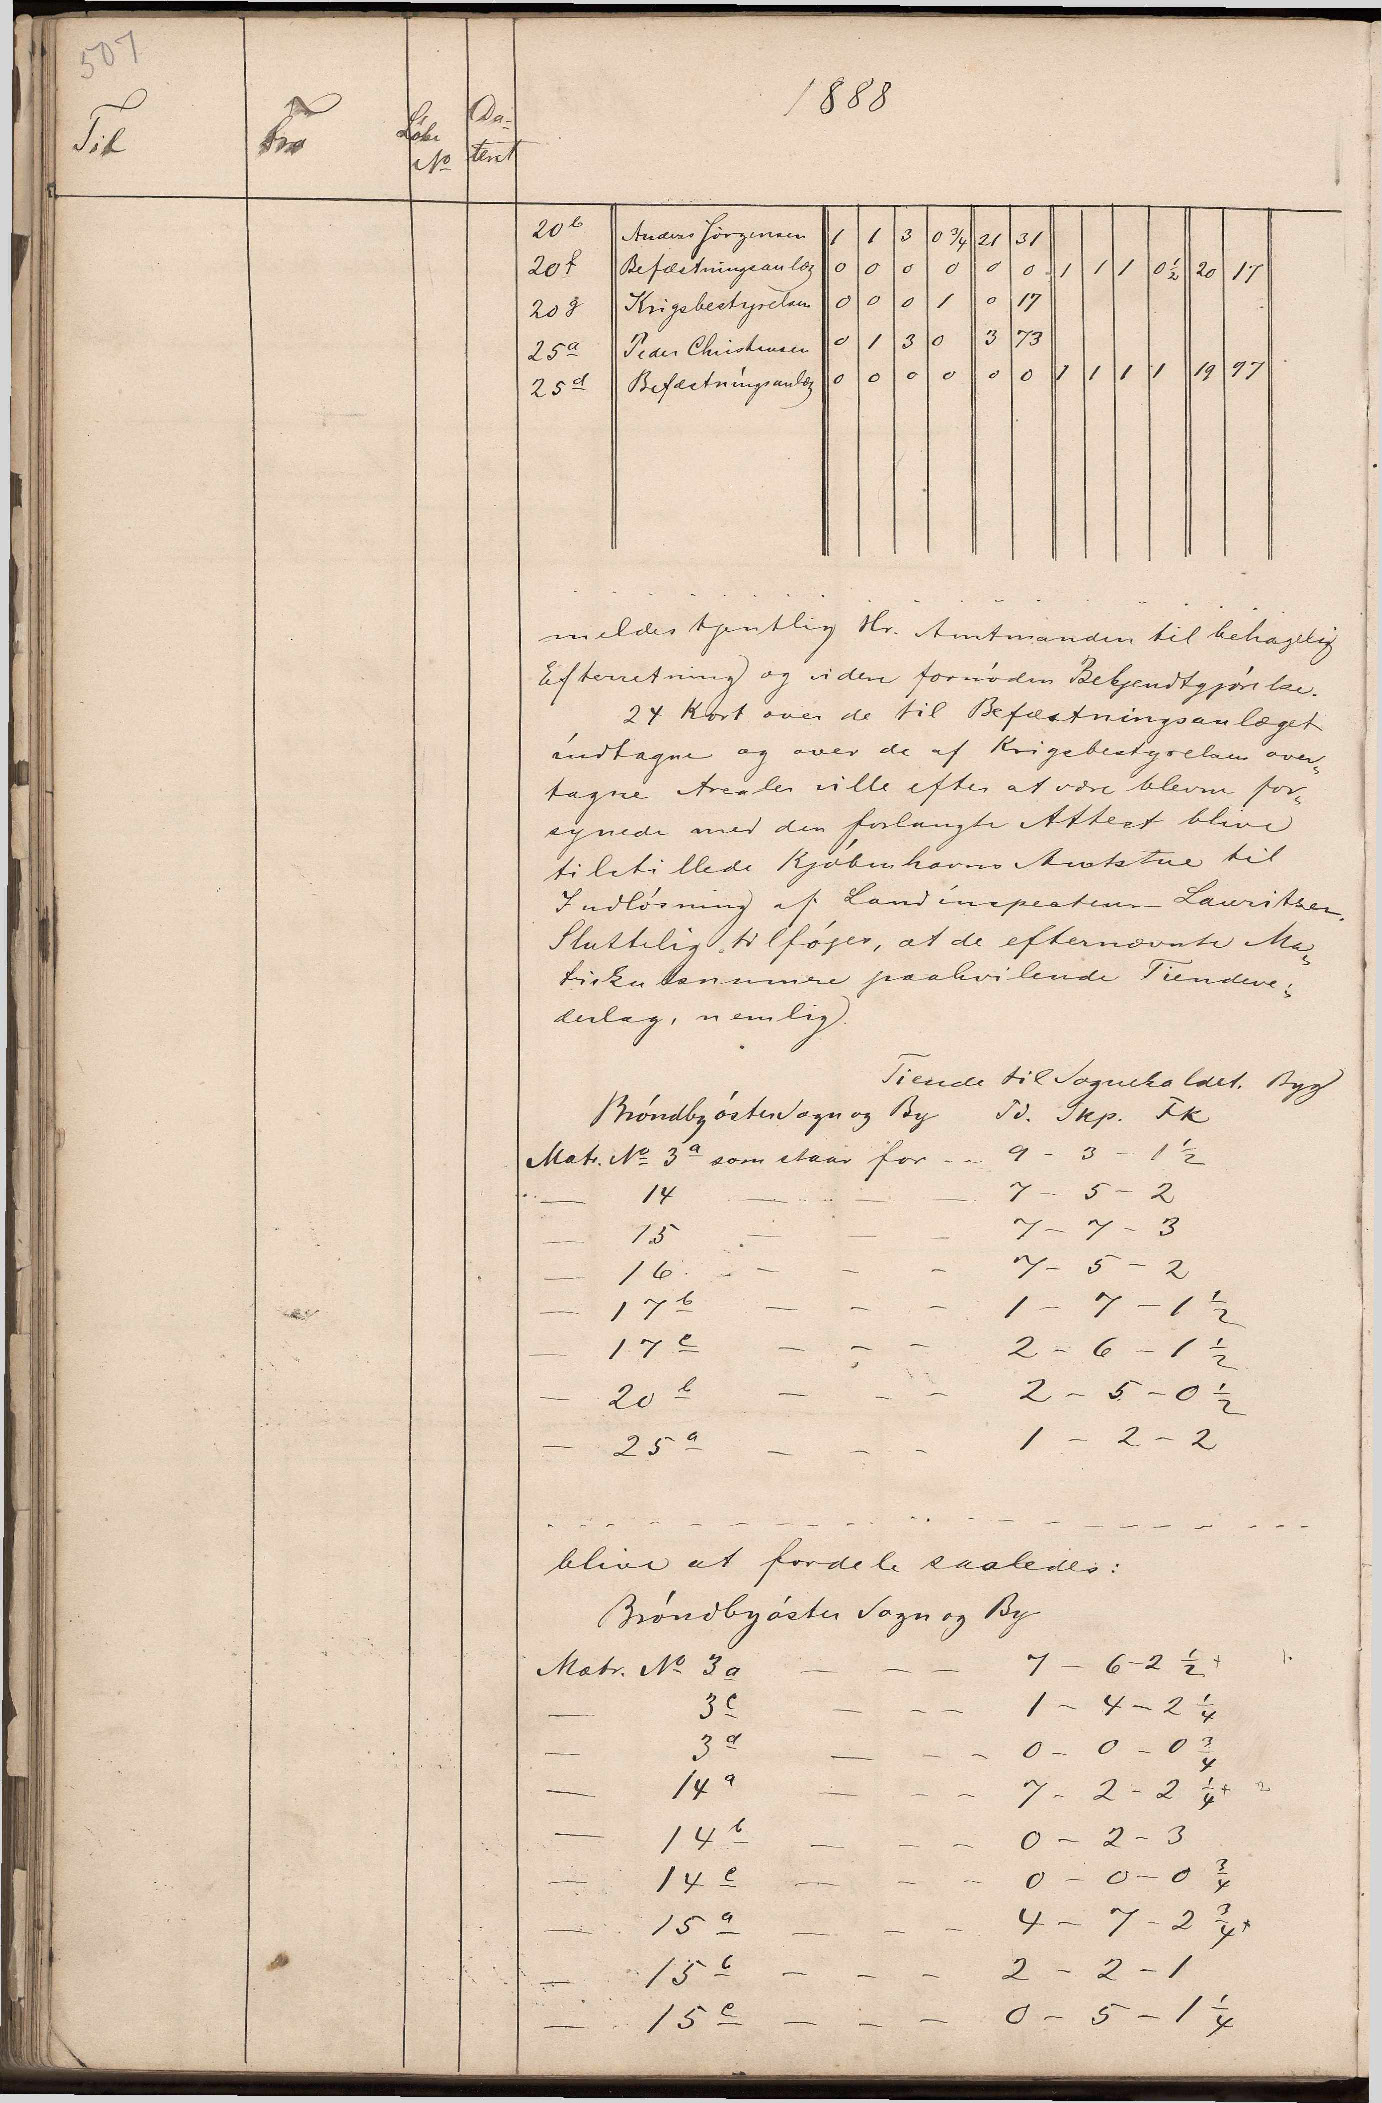 507
1888
Til Fra Løbe No Da- teret
20b Anders Jörgensen 1 1 3 0 3/4 21 31
20f Befæstningsanlæg 0 0 0 0 0 0 1 1 1 0 1/2 20 17
20g Krigsbestyrelsen 0 0 0 1 0 17
25a Peder Christensen 0 1 3 0 3 73
25d Befæstningsanlæg 0 0 0 0 0 0 1 1 1 1 19 97
meldes tjentlig Hr. Amtmanden til behagelig
Efterretning og videre fornöden Bekjendtgjörelse.
24 Kort over de til Befæstningsanlæget
indtagne og over de af Krigsbestyrelsen over„
tagne Arealer ville efter at være blevne for„
synede med den forlangte Attest blive
tilstillede Kjöbenhavns Amtstue til
Indlösning af Landinspecteur Lauritsen.
Sluttelig tilföjes, at de efternævnte Ma„
trikulsnumere paahvilende Tiendeve„
derlag, nemlig
Tiende til Sogneholdet. Byg
Bröndbyöster Sogn og By Td. Skp. Fk
Matr. No 3a som staar for -- 9 - 3 - 1 1/2
— 14 — — — 7 - 5 - 2
— 15 — — — 7 - 7 - 3
— 16 — — — 7 - 5 - 2
— 17b — — — 1 - 7 - 1 1/2
— 17c — — — 2 - 6 - 1 1/2
— 20b — — — 2 - 5 - 0 1/2
— 25a — — — 1 - 2 - 2
blive at fordele saaledes:
Bröndbyöster Sogn og By
Matr. No 3a — — — 7 - 6 - 2 1/2 +
— 3c — — — 1 - 4 - 2 1/4
— 3d — — — 0 - 0 - 0 3/4
— 14a — — — 7 - 2 - 2 1/4 + 2
— 14b — — — 0 - 2 - 3
— 14c — — — 0 - 0 - 0 3/4
— 15a — — — 4 - 7 - 2 3/4 +
— 15b — — — 2 - 2 - 1
— 15c — — — 0 - 5 - 1 1/4